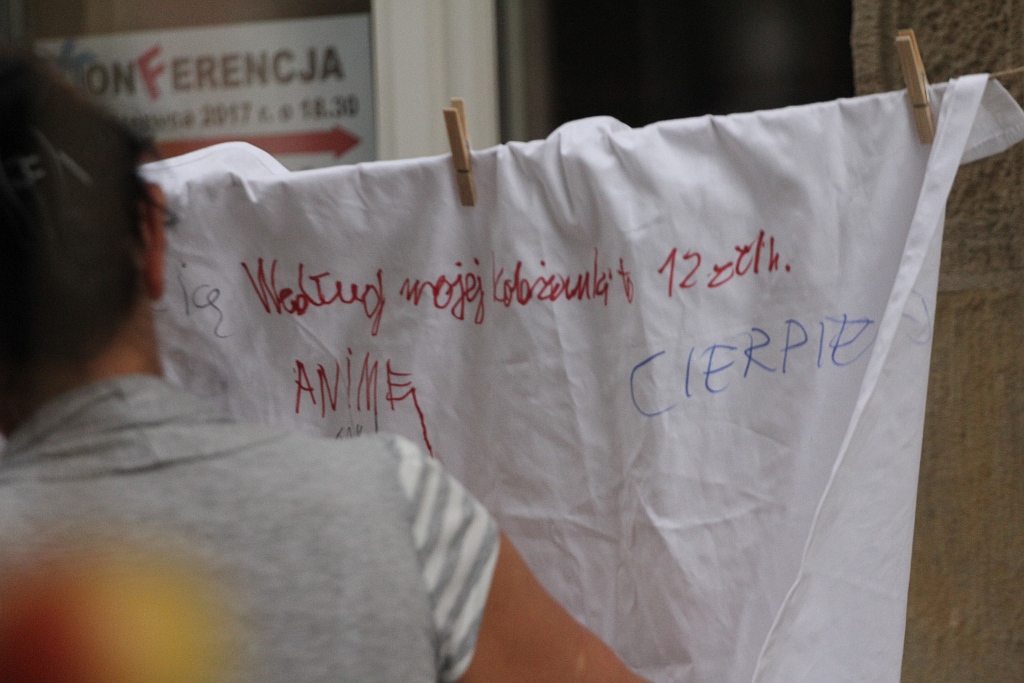 KONFERENCJA
2017 r. o 18.30
icę
Według mojej koleżanki to 12 zł/h.
ANIME
CIERPIE